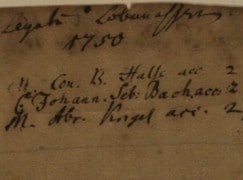 Legat: Lobwasser
1750
Con. R. Halse acc. 2
C. Johann. Seb: Bach acc: 2
M. Abr. Krigel acc. 2